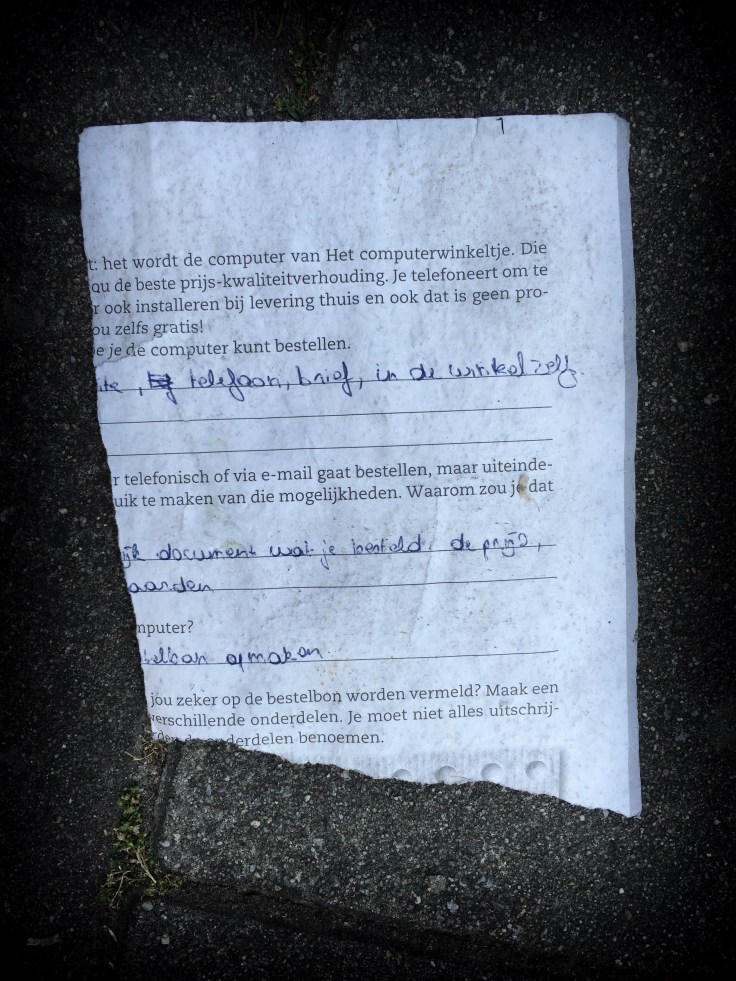 t: het wordt de computer van Het computerwinkeltje. Die
qu de beste prijs-kwaliteitverhouding. Je telefoneert om te
r ook installeren bij levering thuis en ook dat is geen pro-
ou zelfs gratis!
e je de computer kunt bestellen.
ite, telefoon, brief, in de winkel zelf.
r telefonisch of via e-mail gaat bestellen, maar uiteinde-
uik te maken van die mogelijkheden. Waarom zou je dat
ijk document wat je besteld. de prijs,
aarden
mputer?
telbon opmaken.
jou zeker op de bestelbon worden vermeld? Maak een
verschillende onderdelen. Je moet niet alles uitschrij-
onderdelen benoemen.